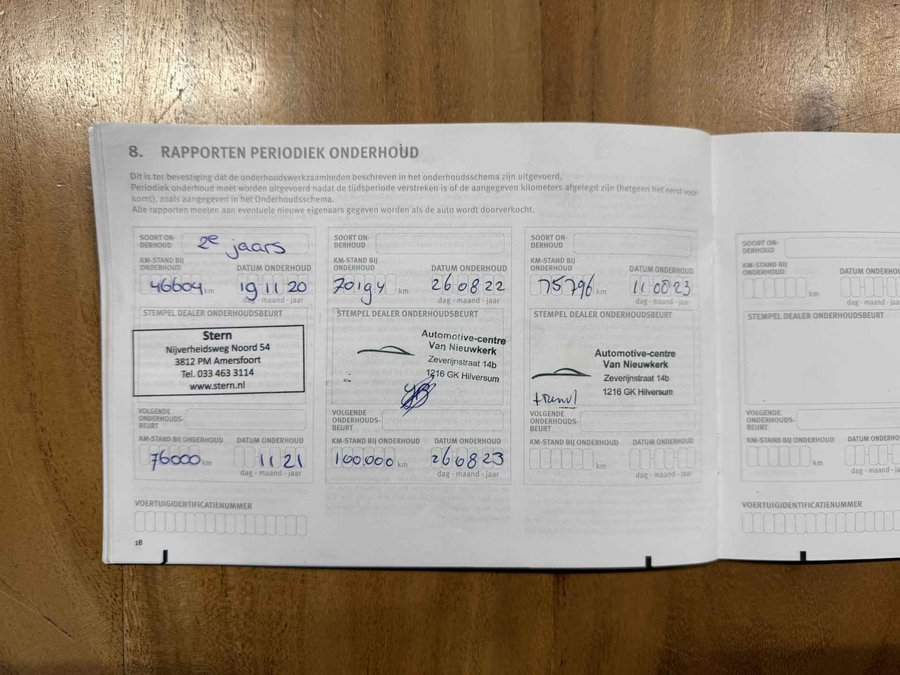 8. RAPPORTEN PERIODIEK ONDERHOUD
Dit is ter bevestiging dat de onderhoudswerkzaamheden beschreven in het onderhoudsschema zijn uitgevoerd.
Periodiek onderhoud moet worden uitgevoerd nadat de tijdsperiode verstreken is of de aangegeven kilometers afgelegd zijn (hetgeen het eerst voor-
komt), zoals aangegeven in het Onderhoudsschema.
Alle rapporten moeten aan eventuele nieuwe eigenaars gegeven worden als de auto wordt doorverkocht.
SOORT ON-
DERHOUD
2e jaars
KM-STAND BIJ
ONDERHOUD
DATUM ONDERHOUD
46604 km
19 11 20
dag - maand - jaar
STEMPEL DEALER ONDERHOUDSBEURT
Stern
Nijverheidsweg Noord 54
3812 PM Amersfoort
Tel. 033 463 3114
www.stern.nl
VOLGENDE
ONDERHOUDS-
BEURT
KM-STAND BIJ ONDERHOUD
DATUM ONDERHOUD
76000 km
11 21
dag - maand - jaar
SOORT ON-
DERHOUD
KM-STAND BIJ
ONDERHOUD
DATUM ONDERHOUD
70194 km
26 08 22
dag - maand - jaar
STEMPEL DEALER ONDERHOUDSBEURT
Automotive-centre
Van Nieuwkerk
Zeverijnstraat 14b
1216 GK Hilversum
VOLGENDE
ONDERHOUDS-
BEURT
KM-STAND BIJ ONDERHOUD
DATUM ONDERHOUD
100.000 km
26 08 23
dag - maand - jaar
SOORT ON-
DERHOUD
KM-STAND BIJ
ONDERHOUD
DATUM ONDERHOUD
75796 km
11 08 23
dag - maand - jaar
STEMPEL DEALER ONDERHOUDSBEURT
Automotive-centre
Van Nieuwkerk
Zeverijnstraat 14b
1216 GK Hilversum
VOLGENDE
ONDERHOUDS-
BEURT
KM-STAND BIJ ONDERHOUD
DATUM ONDERHOUD
km
dag - maand - jaar
VOERTUIGIDENTIFICATIENUMMER
18
SOORT ON-
DERHOUD
KM-STAND BIJ
ONDERHOUD
DATUM ONDERHOUD
km
dag - maand - jaar
STEMPEL DEALER ONDERHOUDSBEURT
VOLGENDE
ONDERHOUDS-
BEURT
KM-STAND BIJ ONDERHOUD
DATUM
km
dag - maand - jaar
VOERTUIGIDENTIFICATIENUMMER